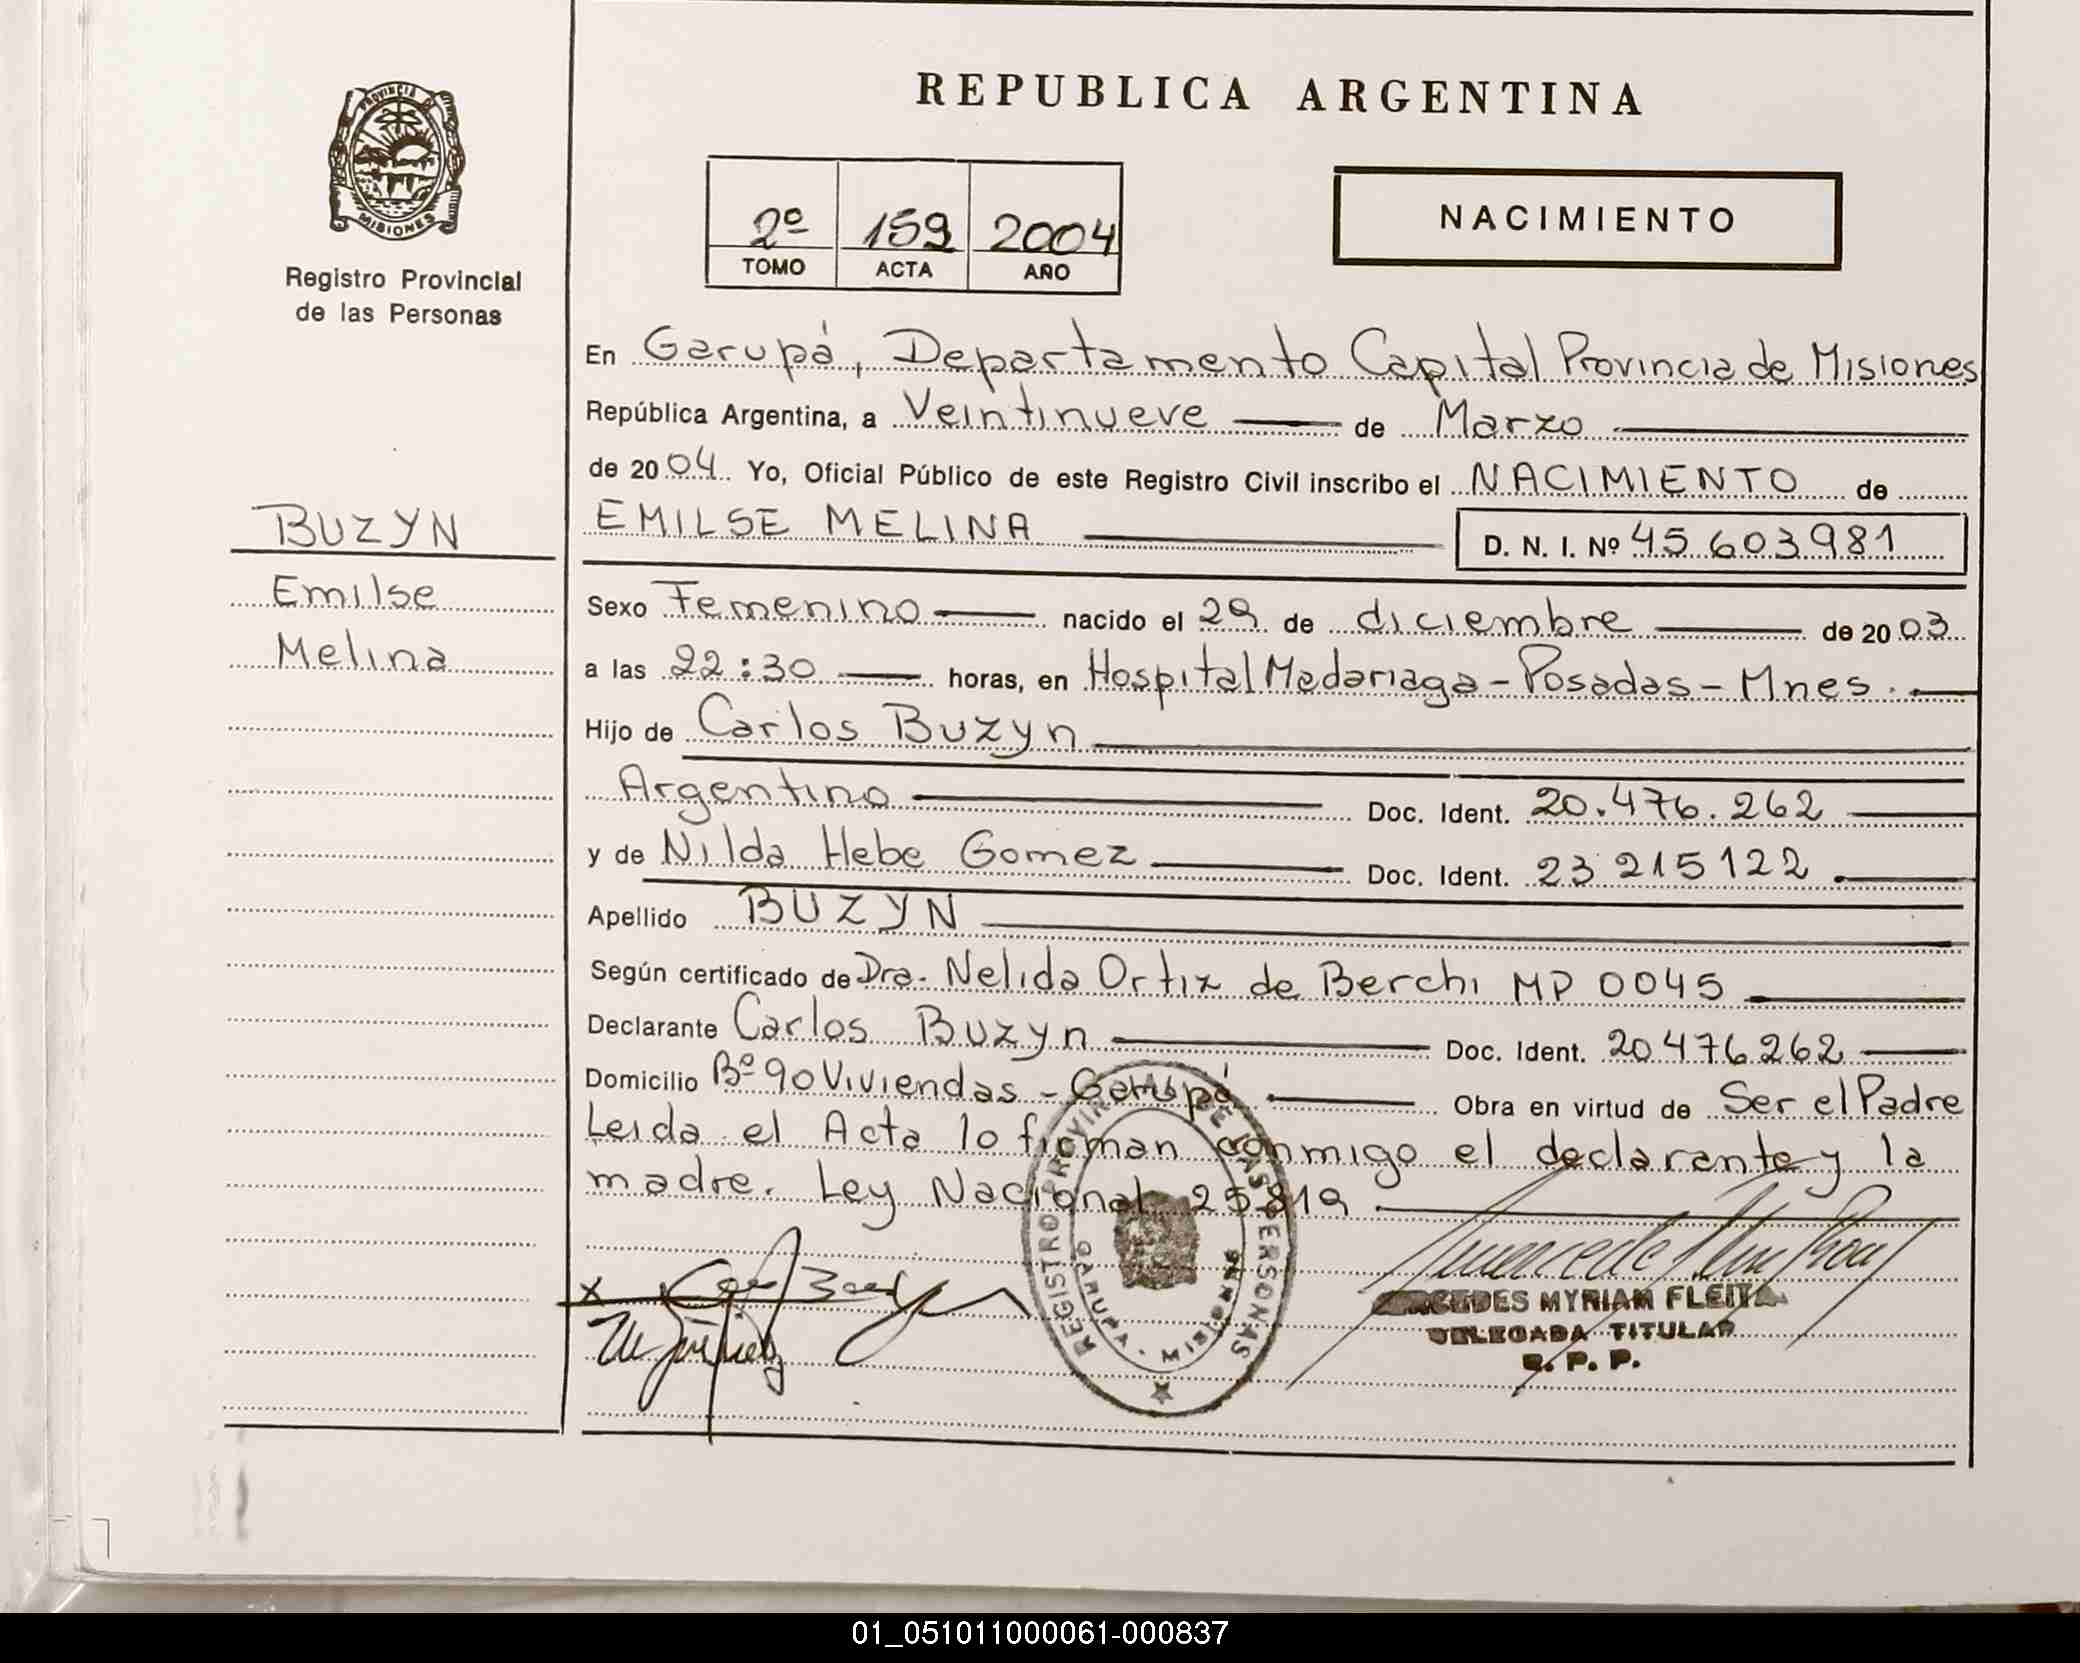 REPUBLICA ARGENTINA
PROVINCIA DE
MISIONES
Registro Provincial
de las Personas
2º 159 2004
TOMO ACTA AÑO
NACIMIENTO
En Garupá, Departamento Capital Provincia de Misiones
República Argentina, a Veintinueve de Marzo
de 2004 Yo, Oficial Público de este Registro Civil inscribo el NACIMIENTO de
BUZYN
EMILSE MELINA D. N. I. Nº 45 603 981
Emilse
Sexo Femenino nacido el 29 de diciembre de 2003
Melina
a las 22:30 horas, en Hospital Madariaga - Posadas - Mnes.
Hijo de Carlos Buzyn
Argentino Doc. Ident. 20.476.262
y de Nilda Hebe Gomez Doc. Ident. 23 215 122
Apellido BUZYN
Según certificado de Dra. Nelida Ortiz de Berchi MP 0045
Declarante Carlos Buzyn Doc. Ident. 20 476 262
Domicilio Bº 90 Viviendas - Garupá Obra en virtud de Ser el Padre
Leida el Acta lo firman conmigo el declarante y la
madre. Ley Nacional 25819
REGISTRO PROVINCIAL DE LAS PERSONAS
GARUPA - MISIONES
X
MERCEDES MYRIAM FLEITA
DELEGADA TITULAR
R. P. P.
01_051011000061-000837